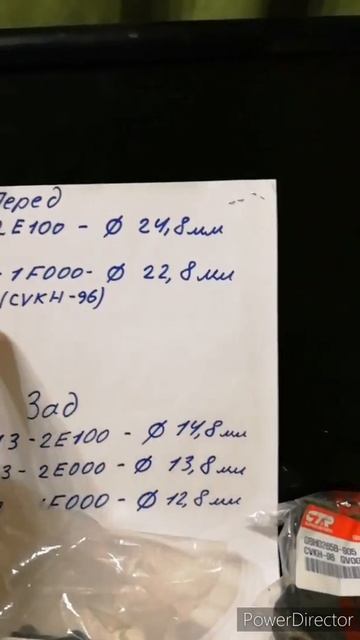 Перед
2E100 - Ø 24,8мм
- 1F000- Ø 22,8мм
(CVKH-96)
Зад
13-2E100 - Ø 14,8мм
3-2E000 - Ø 13,8мм
1F000 - Ø 12,8мм
CTR
CVKH-96
PowerDirector